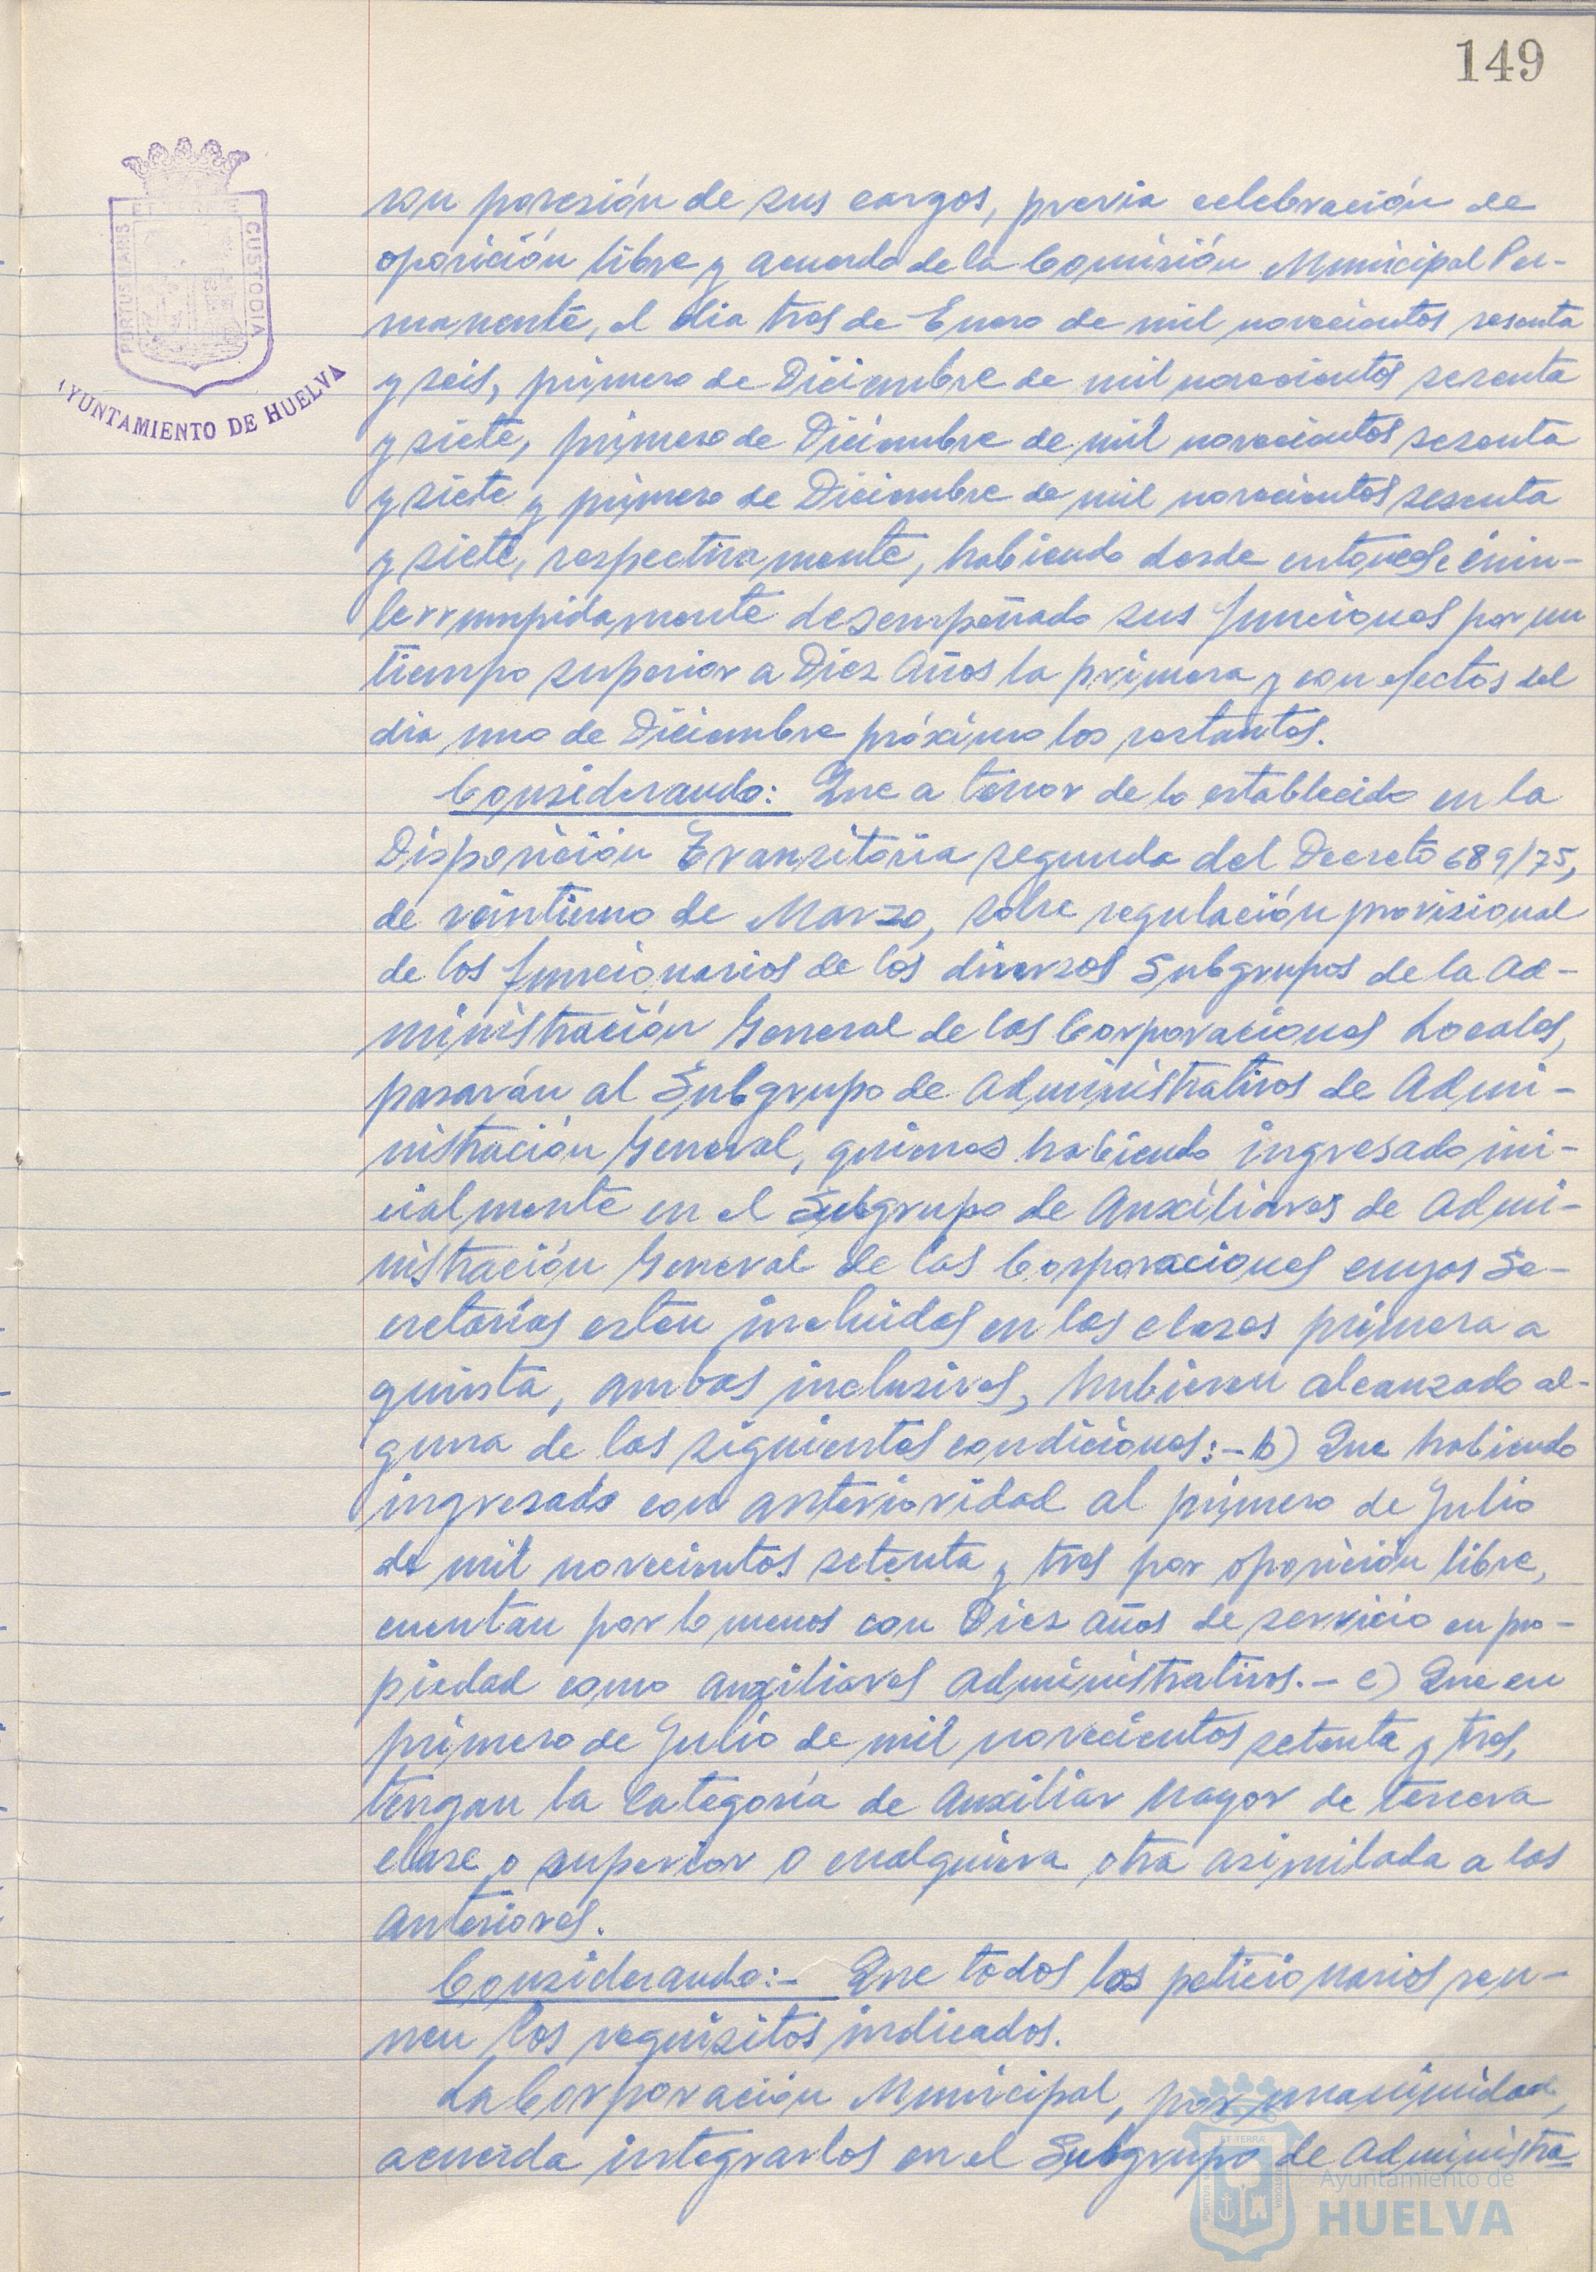 149
PORTUS MARIS
CUSTODIA
AYUNTAMIENTO DE HUELVA
ron posesión de sus cargos, previa celebración de
oposición libre y acuerdo de la Comisión Municipal Per-
manente, el dia tres de Enero de mil novecientos sesenta
y seis, primero de Diciembre de mil novecientos sesenta
y siete, primero de Diciembre de mil novecientos sesenta
y siete y primero de Diciembre de mil novecientos sesenta
y siete, respectivamente, habiendo desde entonces e inin-
terrumpidamente desempeñado sus funciones por un
tiempo superior a Diez Años la primera y con efectos del
dia uno de Diciembre próximo los restantes.
Considerando: Que a tenor de lo establecido en la
Disposición Transitoria segunda del Decreto 689/75,
de veintiuno de Marzo, sobre regulación provisional
de los funcionarios de los diversos Subgrupos de la Ad-
ministración General de las Corporaciones Locales,
pasarán al Subgrupo de Administrativos de Admi-
nistración General, quienes habiendo ingresado ini-
cialmente en el Subgrupo de Auxiliares de Admi-
nistración General de las Corporaciones cuyos Se-
cretarías estén incluidas en las clases primera a
quinta, ambas inclusives, hubieren alcanzado al-
guna de las siguientes condiciones:- b) Que habiendo
ingresado con anterioridad al primero de Julio
de mil novecientos setenta y tres por oposición libre,
cuentan por lo menos con Diez años de servicio en pro-
piedad como auxiliares administrativos.- c) Que en
primero de Julio de mil novecientos setenta y tres,
tengan la categoría de Auxiliar Mayor de tercera
clase o superior o cualquiera otra asimilada a las
anteriores.
Considerando:- Que todos los peticionarios reu-
nen los requisitos indicados.
La Corporación Municipal, por unanimidad,
acuerda integrarlos en el Subgrupo de Administra-
Ayuntamiento de
HUELVA